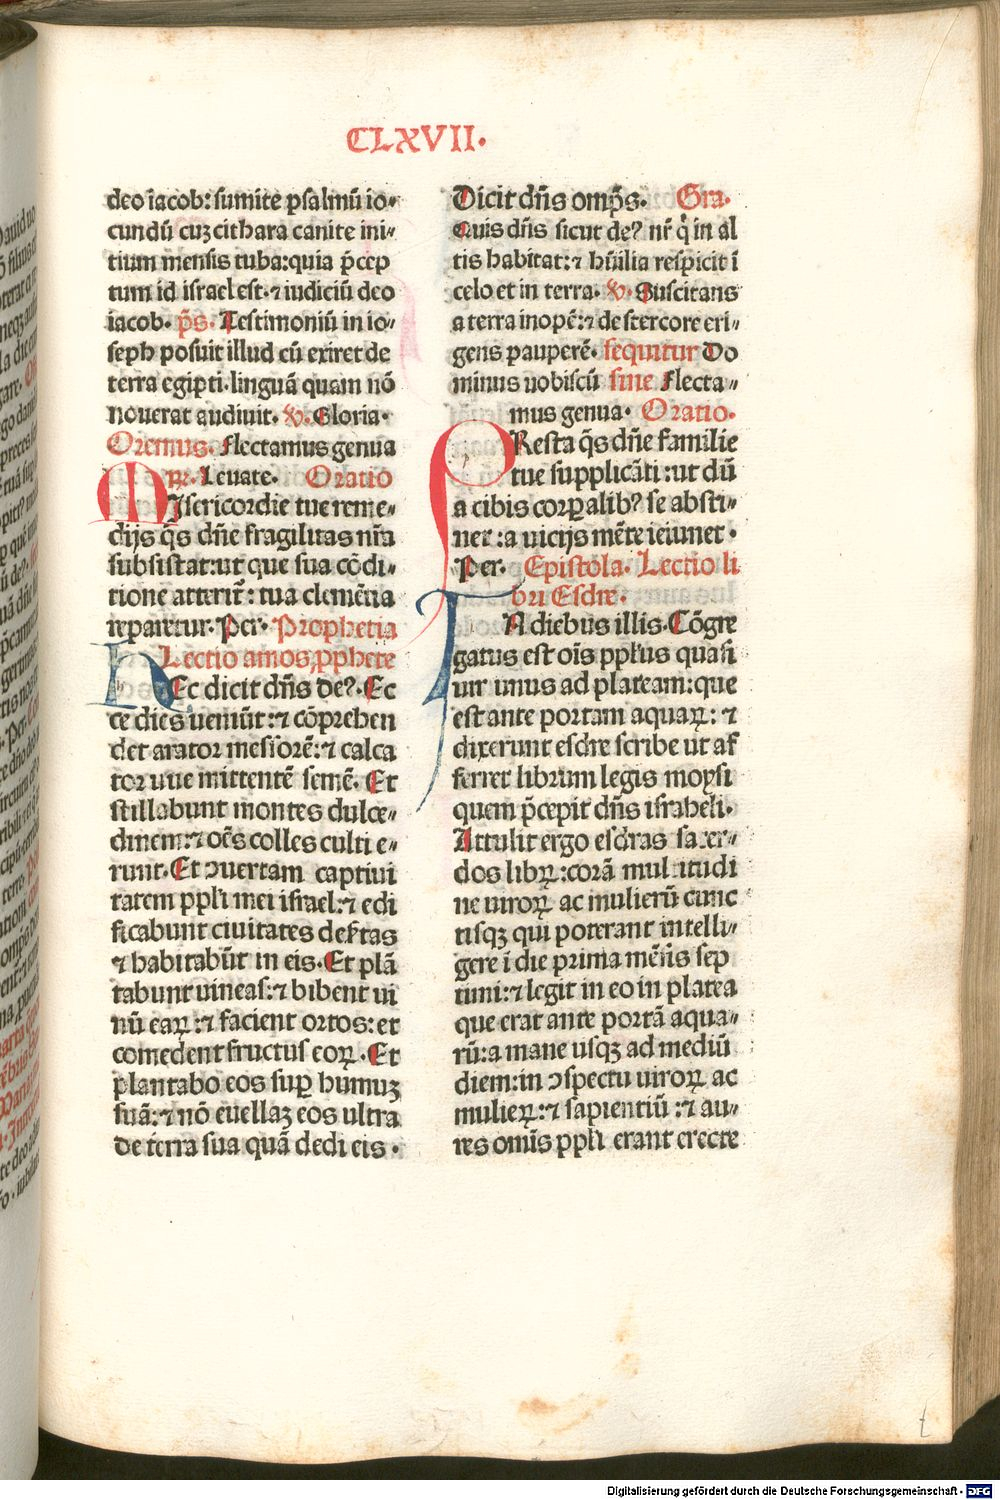 CLXVII.
deo iacob: sumite psalmū io⸗
cundū cuꝫ cithara canite ini⸗
tium mensis tuba: quia p̄cep
tum id israel est. ⁊ iudiciū deo
iacob. p̄s. Testimoniū in io⸗
seph posuit illud cū exiret de
terra egipti. linguā quam nō
nouerat audiuit. ℣. Gloria.
Oremus. Flectamus genua
℟. Leuate. Oratio
Misericordie tue reme⸗
dijs q̄s dn̄e fragilitas nr̄a
subsistat: ut que sua cōdi⸗
tione atterit̄: tua clemētia
reparetur. Per. Prophetia
Lectio amos ꝓphete
Hec dicit dn̄s deꝰ. Ec
ce dies ueniūt: ⁊ cōprehen
det arator messorē: ⁊ calca
tor uue mittentē semē. Et
stillabunt montes dulce⸗
dinem: ⁊ oēs colles culti e⸗
runt. Et ꝯuertam captiui
tatem ppl'i mei israel: ⁊ edi
ficabunt ciuitates desr̄tas
⁊ habitabūt in eis. Et plā
tabunt uineas: ⁊ bibent ui
nū eaꝝ: ⁊ facient ortos: et
comedent fructus eoꝝ. Et
plantabo eos suꝑ humuꝫ
suā: ⁊ nō euellaꝫ eos ultra
de terra sua quā dedi eis.
Dicit dn̄s omp̄s. Gra.
Quis dn̄s sicut deꝰ nr̄ qͥ in al
tis habitat: ⁊ hūilia respicit ī
celo et in terra. ℣. Suscitans
a terra inopē: ⁊ de stercore eri⸗
gens pauperē. sequitur Do
minus uobiscū sine Flecta⸗
mus genua. Oratio.
Presta q̄s dn̄e familie
tue supplicāti: ut dū
a cibis corꝑalibꝰ se absti⸗
net: a uicijs mēte ieiunet.
Per. Epistola. Lectio li
bri Esdre.
In diebus illis. Cōgre
gatus est oīs ppl'us quasi
uir unus ad plateam: que
est ante portam aquaꝝ: ⁊
dixerunt esdre scribe ut af
ferret librum legis moysi
quem p̄cepit dn̄s israheli.
Attulit ergo esdras sacer⸗
dos libꝝ: corā multitudi
ne uiroꝝ ac mulierū cunc
tisqꝫ qui poterant intelli⸗
gere ī die prima mēsis sep
timi: ⁊ legit in eo in platea
que erat ante portā aqua⸗
rū: a mane usqꝫ ad mediū
diem: in ꝯspectu uiroꝝ ac
mulieꝝ: ⁊ sapientiū: ⁊ au⸗
res omīs ppl'i erant erecte
Digitalisierung gefördert durch die Deutsche Forschungsgemeinschaft - DFG